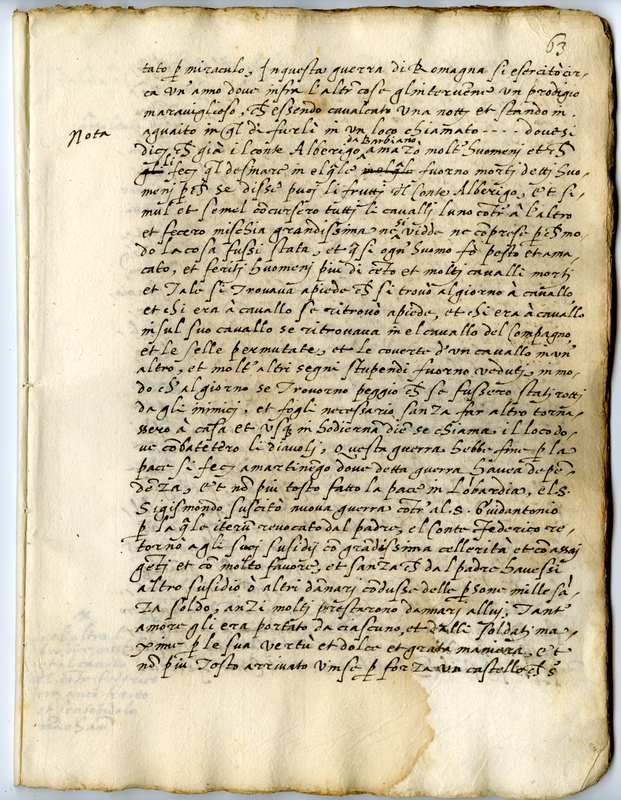 63
tato p miraculo, In questa guerra di Romagna si esercitò cir-
ca un'anno dove infra l'altre cose gl'intervene un prodigio
maraviglioso, ch essendo cavalcato una nott et stando in
Nota
aguaito in ql di furlì in un loco chiamato - - - - dove si
da Barbiano
dice ch già il conte Alberigo amazò molt huomeni et ch
li
fece ql desmare in el qle fuorno morti detti huo-
meni p ch se disse li frutti del Conte Alberigo, et si-
mul et semel cōcursero tutti le cavalli luno cōtr à l'altro
si
et fecero mischia grandissima ne vidde ne cōprese p ch mo-
do la cosa fussi stata, et qsi ogn' huomo fo pesto et ama-
cato, et feriti huomeni piu di cēto et molti cavalli morti
et Tale si trovava apiede ch si trovò al giorno à cavallo
et chi era à cavallo se ritrovò apiede, et chi era à cavallo
in sul suo cavallo se ritrovava in el cavallo del Compagno,
et le selle permutate, et le coverte d'un cavallo in un'
altro, et molt' altri segni stupendi fuorno veduti, in mo-
do ch' al giorno se trovorno peggio ch se fussero stati rotti
da gli inimici, et fogli necessario sanza far altro torna-
ssero à casa et usq in hodiernā diem se chiama il loco do-
ve cōbatetero li diavoli, Questa guerra hebbe fine p la
pace si fece a martinēgo dove detta guerra havea depē-
dēza, et nō piu tosto fatto la pace in Lōbardia, el S.
Sigismondo suscitò nuova guerra cōtr' al S. Guidantonio
p la qle iterū revocato dal padre, el Conte Federico re-
tornò a gli suoi susidij cō gradissima cellerità et cō assai
gēti et cō molto favore, et sanza ch dal padre havessi
altro susidio ò altri dānari cōdusse delle psone mille sā-
za soldo, anzi molti prestarono dannari allui, Tant'
amore gli era portato da ciascuno, et dalli soldati ma-
xime p le sua vertù et dolce et grata maniera, et
nō piu Tosto arrivato vinse p forza un castello ch s